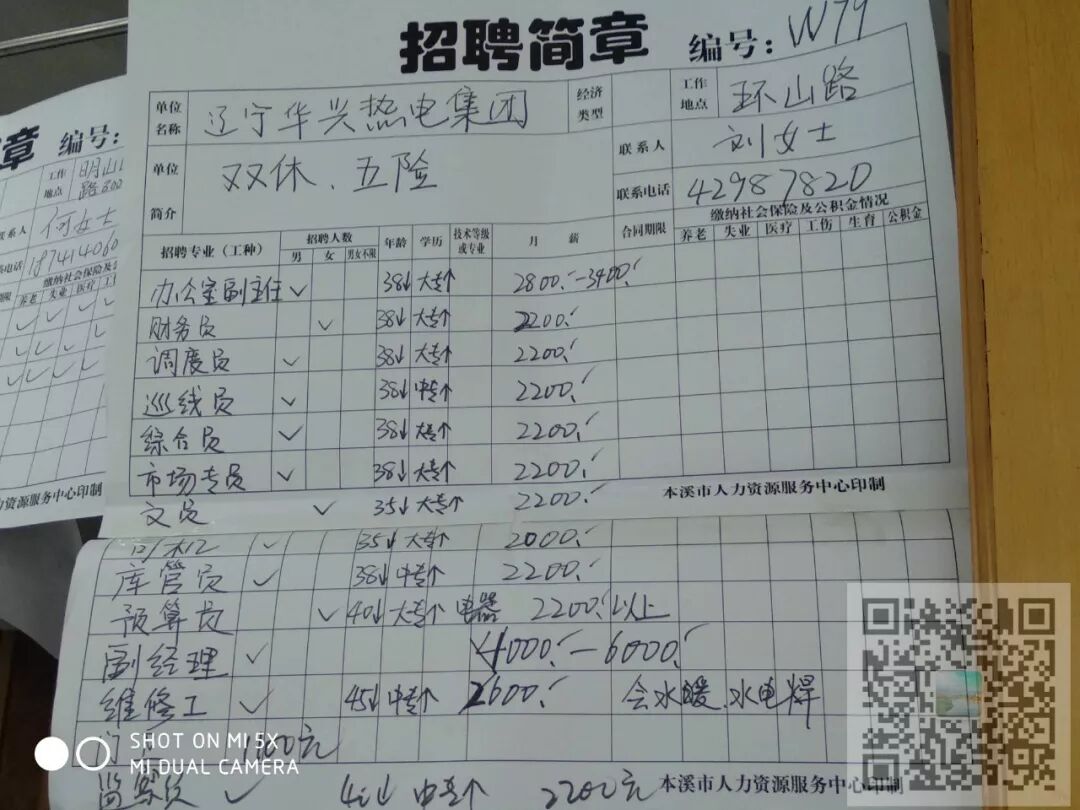 招聘简章 编号：W79
单位名称 辽宁华兴热电集团 经济类型 工作地点 环山路
单位简介 双休、五险 联系人 刘女士
联系电话 42987820
招聘专业（工种） 招聘人数 男 女 男女不限 年龄 学历 技术等级或专业 月薪 合同期限 缴纳社会保险及公积金情况 养老 失业 医疗 工伤 生育 公积金
办公室副主任 ✓ 38↓ 大专↑ 2800.-3400.
财务员 ✓ 38↓ 大专↑ 2200.
调度员 ✓ 38↓ 大专↑ 2200.
巡线员 ✓ 38↓ 中专↑ 2200.
综合员 ✓ 38↓ 大专↑ 2200.
市场专员 ✓ 38↓ 大专↑ 2200.
本溪市人力资源服务中心印制
文员 ✓ 35↓ 大专↑ 2200.
✓ 35↓ 大专↑ 2000.
库管员 ✓ 38↓ 中专↑ 2200.
预算员 ✓ 40↓ 大专↑ 电器 2200.以上
副经理 ✓ 4000.-6000.
维修工 ✓ 45↓ 中专↑ 2600. 会水暖.水电焊
元
监察员 ✓ 中专↑ 2200元
本溪市人力资源服务中心印制
章 编号：
工作地点 明山
路
联系人 何女士
电话 187414060
缴纳社会保险及公
期限 养老 失业 医疗 工
人力资源服务中心印制
SHOT ON MI 5X
MI DUAL CAMERA